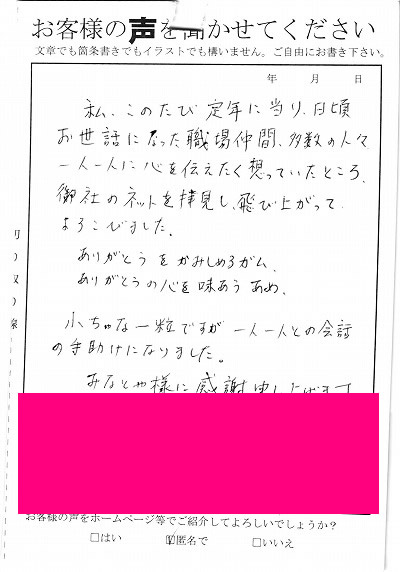 お客様の声を聞かせてください
文章でも箇条書きでもイラストでも構いません。ご自由にお書き下さい。
年 月 日
私、このたび定年に当り、日頃
お世話になった職場仲間、多数の人々
一人一人に心を伝えたく想っていたところ、
御社のネットを拝見し、飛び上がって
よろこびました。
ありがとうをかみしめるガム、
ありがとうの心を味あうあめ、
小ちゃな一粒ですが一人一人との会話
の手助けになりました。
みなとや様に感謝申し上げます
お客様の声をホームページ等でご紹介してよろしいでしょうか？
□はい ☑匿名で □いいえ